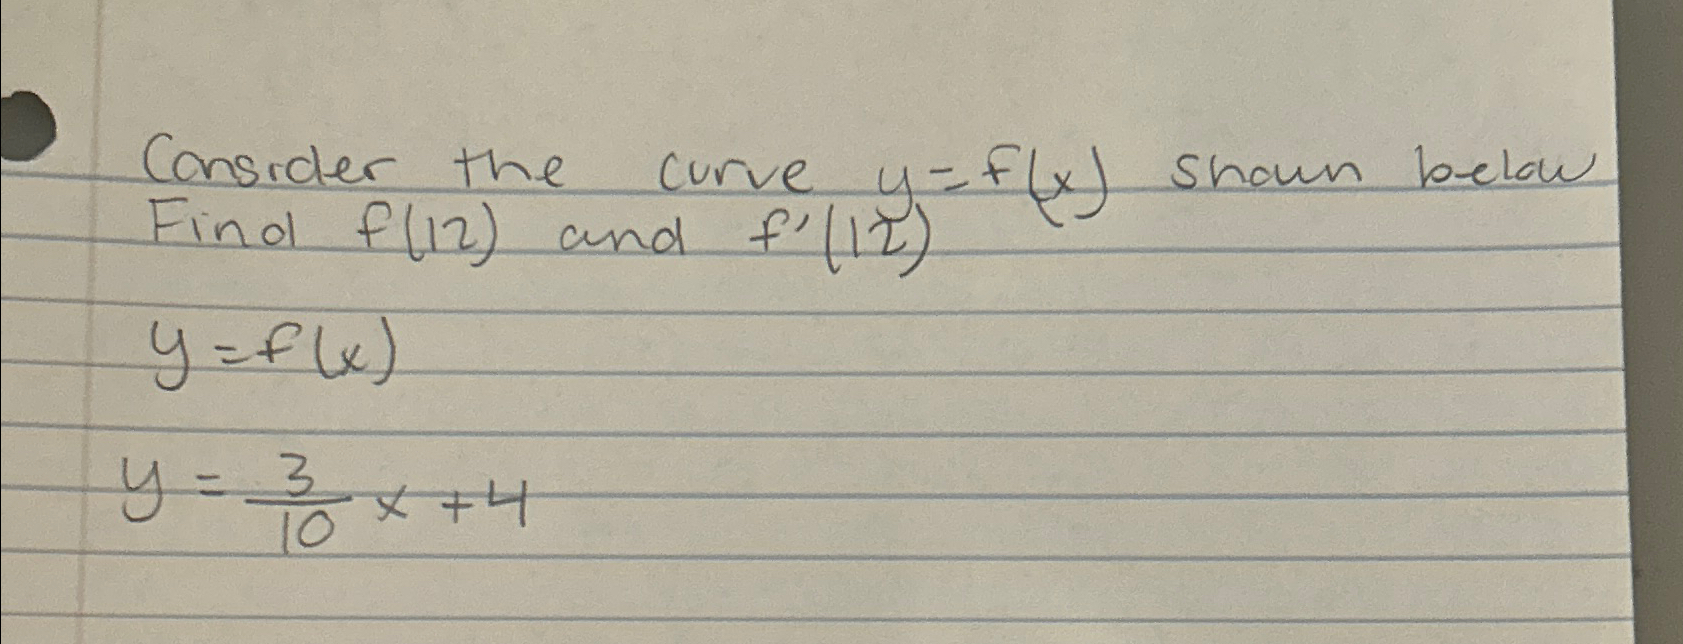 Consider the curve y=f(x) shown below
Find f(12) and f'(12)
y=f(x)
y = 3/10 x + 4